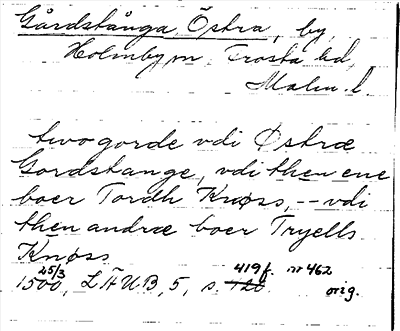 Gårdstånga, Östra, by,
Holmby sn Frosta hd,
Malm. l.
two gorde vdi Østræ
Gordstange, vdi then ene
boer Tordh Knøss, -- vdi
then andræ boer Tryells
Knøss
1500 25/3, LÄUB, 5, s. 120 419 f. nr 462
orig.